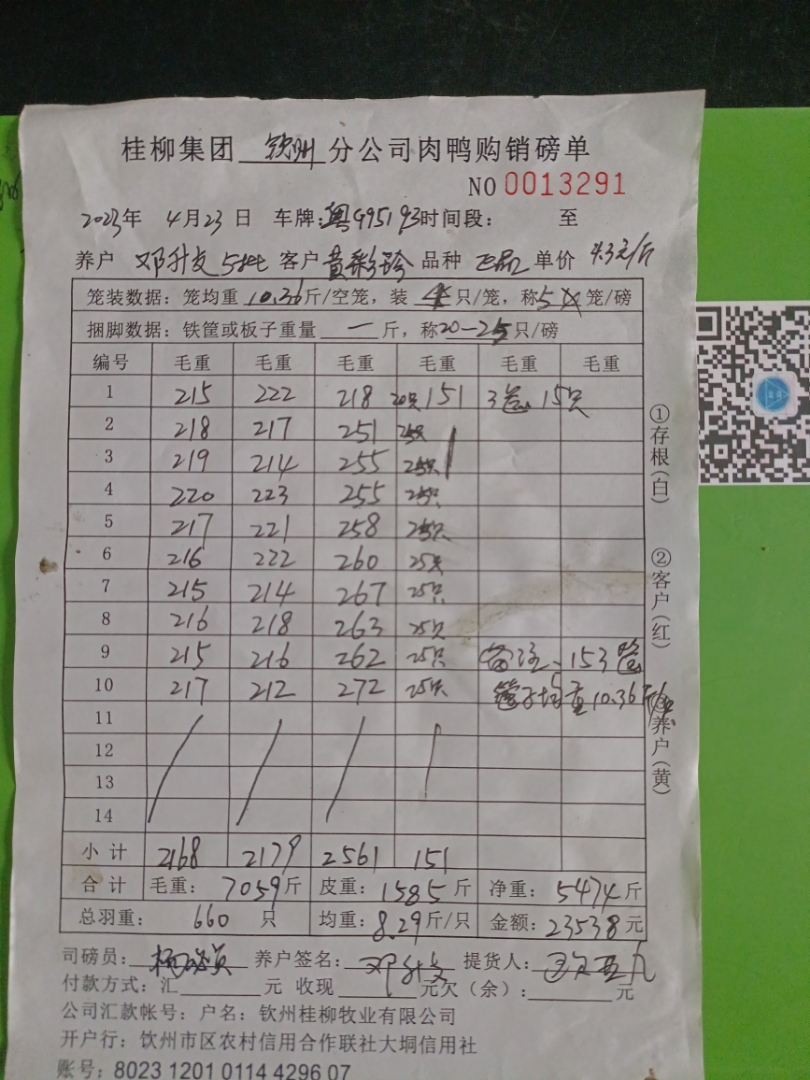 桂柳集团 钦州 分公司肉鸭购销磅单
NO 0013291
2023年 4月23日 车牌:粤G95193 时间段: 至
养户 邓升 客户 黄彩珍 品种 正品 单价 4.3元/斤
笼装数据: 笼均重 10.36 斤/空笼, 装 4 只/笼, 称 5 笼/磅
捆脚数据: 铁筐或板子重量 一 斤, 称20-25只/磅
编号 毛重 毛重 毛重 毛重 毛重 毛重
1 215 222 218 20只 151 3笼 15只
2 218 217 251 25只
3 219 214 255 25只
4 220 223 255 25只
5 217 221 258 25只
6 216 222 260 25只
7 215 214 267 25只
8 216 218 263 25只
9 215 216 262 25只 备注、153笼
10 217 212 272 25只 笼子均重10.36斤/
11
12
13
14
小计 2168 2179 2561 151
合计 毛重: 7059斤 皮重: 1585斤 净重: 5474斤
总羽重: 660 只 均重: 8.29斤/只 金额: 23538元
司磅员: 养户签名: 邓升 提货人:
付款方式: 汇 元 收现 元欠(余): 元
公司汇款帐号: 户名: 钦州桂柳牧业有限公司
开户行: 钦州市区农村信用合作联社大垌信用社
账号: 8023 1201 0114 4296 07
①存根(白)
②客户(红)
养户(黄)